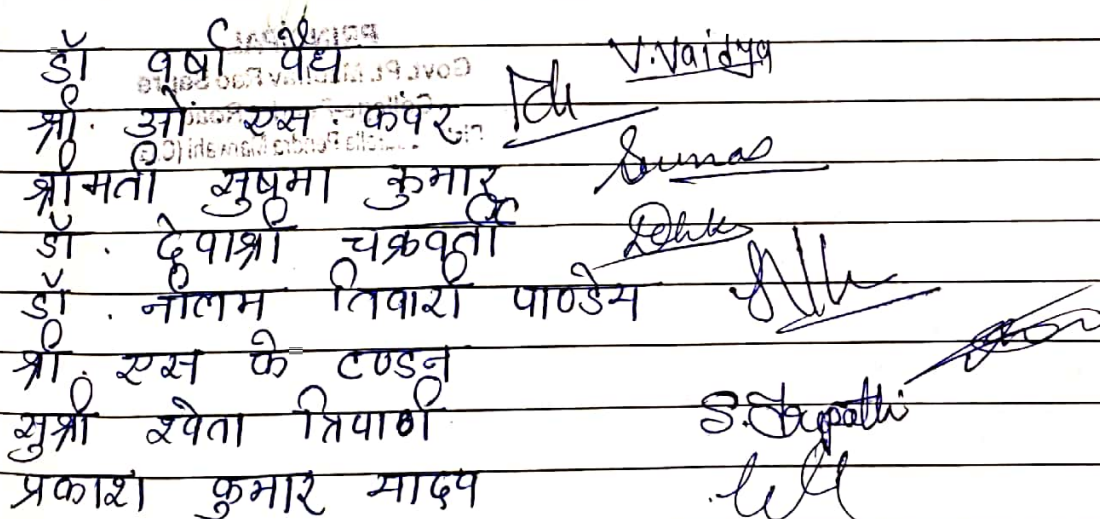 डॉ वर्षा वैद्य V.Vaidya
श्री. ओ. एस. कंवर
श्रीमती सुषमा कुमार
डॉ. देवाश्री चक्रवर्ती
डॉ. नीलम तिवारी पाण्डेय
श्री. एस के टण्डन
सुश्री श्वेता त्रिपाठी S.Tripathi
प्रकाश कुमार यादव